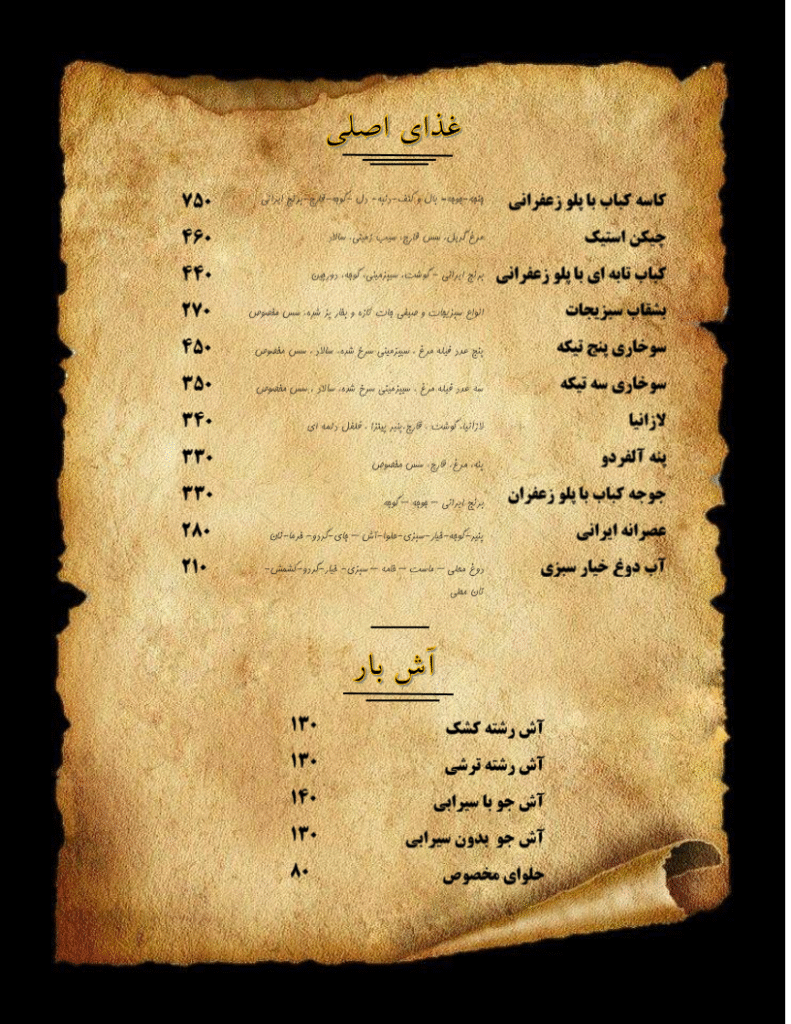 غذای اصلی
کاسه کباب با پلو زعفرانی پنچه-جوجه- بال و کتف-دنبه- دل -گوجه-قارچ-برنج ایرانی ۷۵۰
چیکن استیک مرغ گریل، سس قارچ، سیب زمینی، سالاد ۴۶۰
کباب تابه ای با پلو زعفرانی برنج ایرانی - گوشت، سیبزمینی، گوجه، دورچین ۴۴۰
بشقاب سبزیجات انواع سبزیجات و صیفی جات تازه و بخار پز شده، سس مخصوص ۲۷۰
سوخاری پنج تیکه پنج عدد فیله مرغ ، سیبزمینی سرخ شده، سالاد ، سس مخصوص ۴۵۰
سوخاری سه تیکه سه عدد فیله مرغ ، سیبزمینی سرخ شده، سالاد ، سس مخصوص ۳۵۰
لازانیا لازانیا، گوشت ، قارچ،پنیر پیتزا ، فلفل دلمه ای ۳۴۰
پنه آلفردو پنه، مرغ، قارچ، سس مخصوص ۳۳۰
جوجه کباب با پلو زعفران برنج ایرانی – جوجه – گوجه ۳۳۰
عصرانه ایرانی پنیر-گوجه-خیار-سبزی-حلوا-آش – چای-گردو- خرما-نان ۲۸۰
آب دوغ خیار سبزی دوغ محلی – ماست – – سبزی- خیار-گردو-کشمش- ۲۱۰
نان محلی
آش بار
آش رشته کشک ۱۳۰
آش رشته ترشی ۱۳۰
آش جو با سیرابی ۱۴۰
آش جو بدون سیرابی ۱۳۰
حلوای مخصوص ۸۰